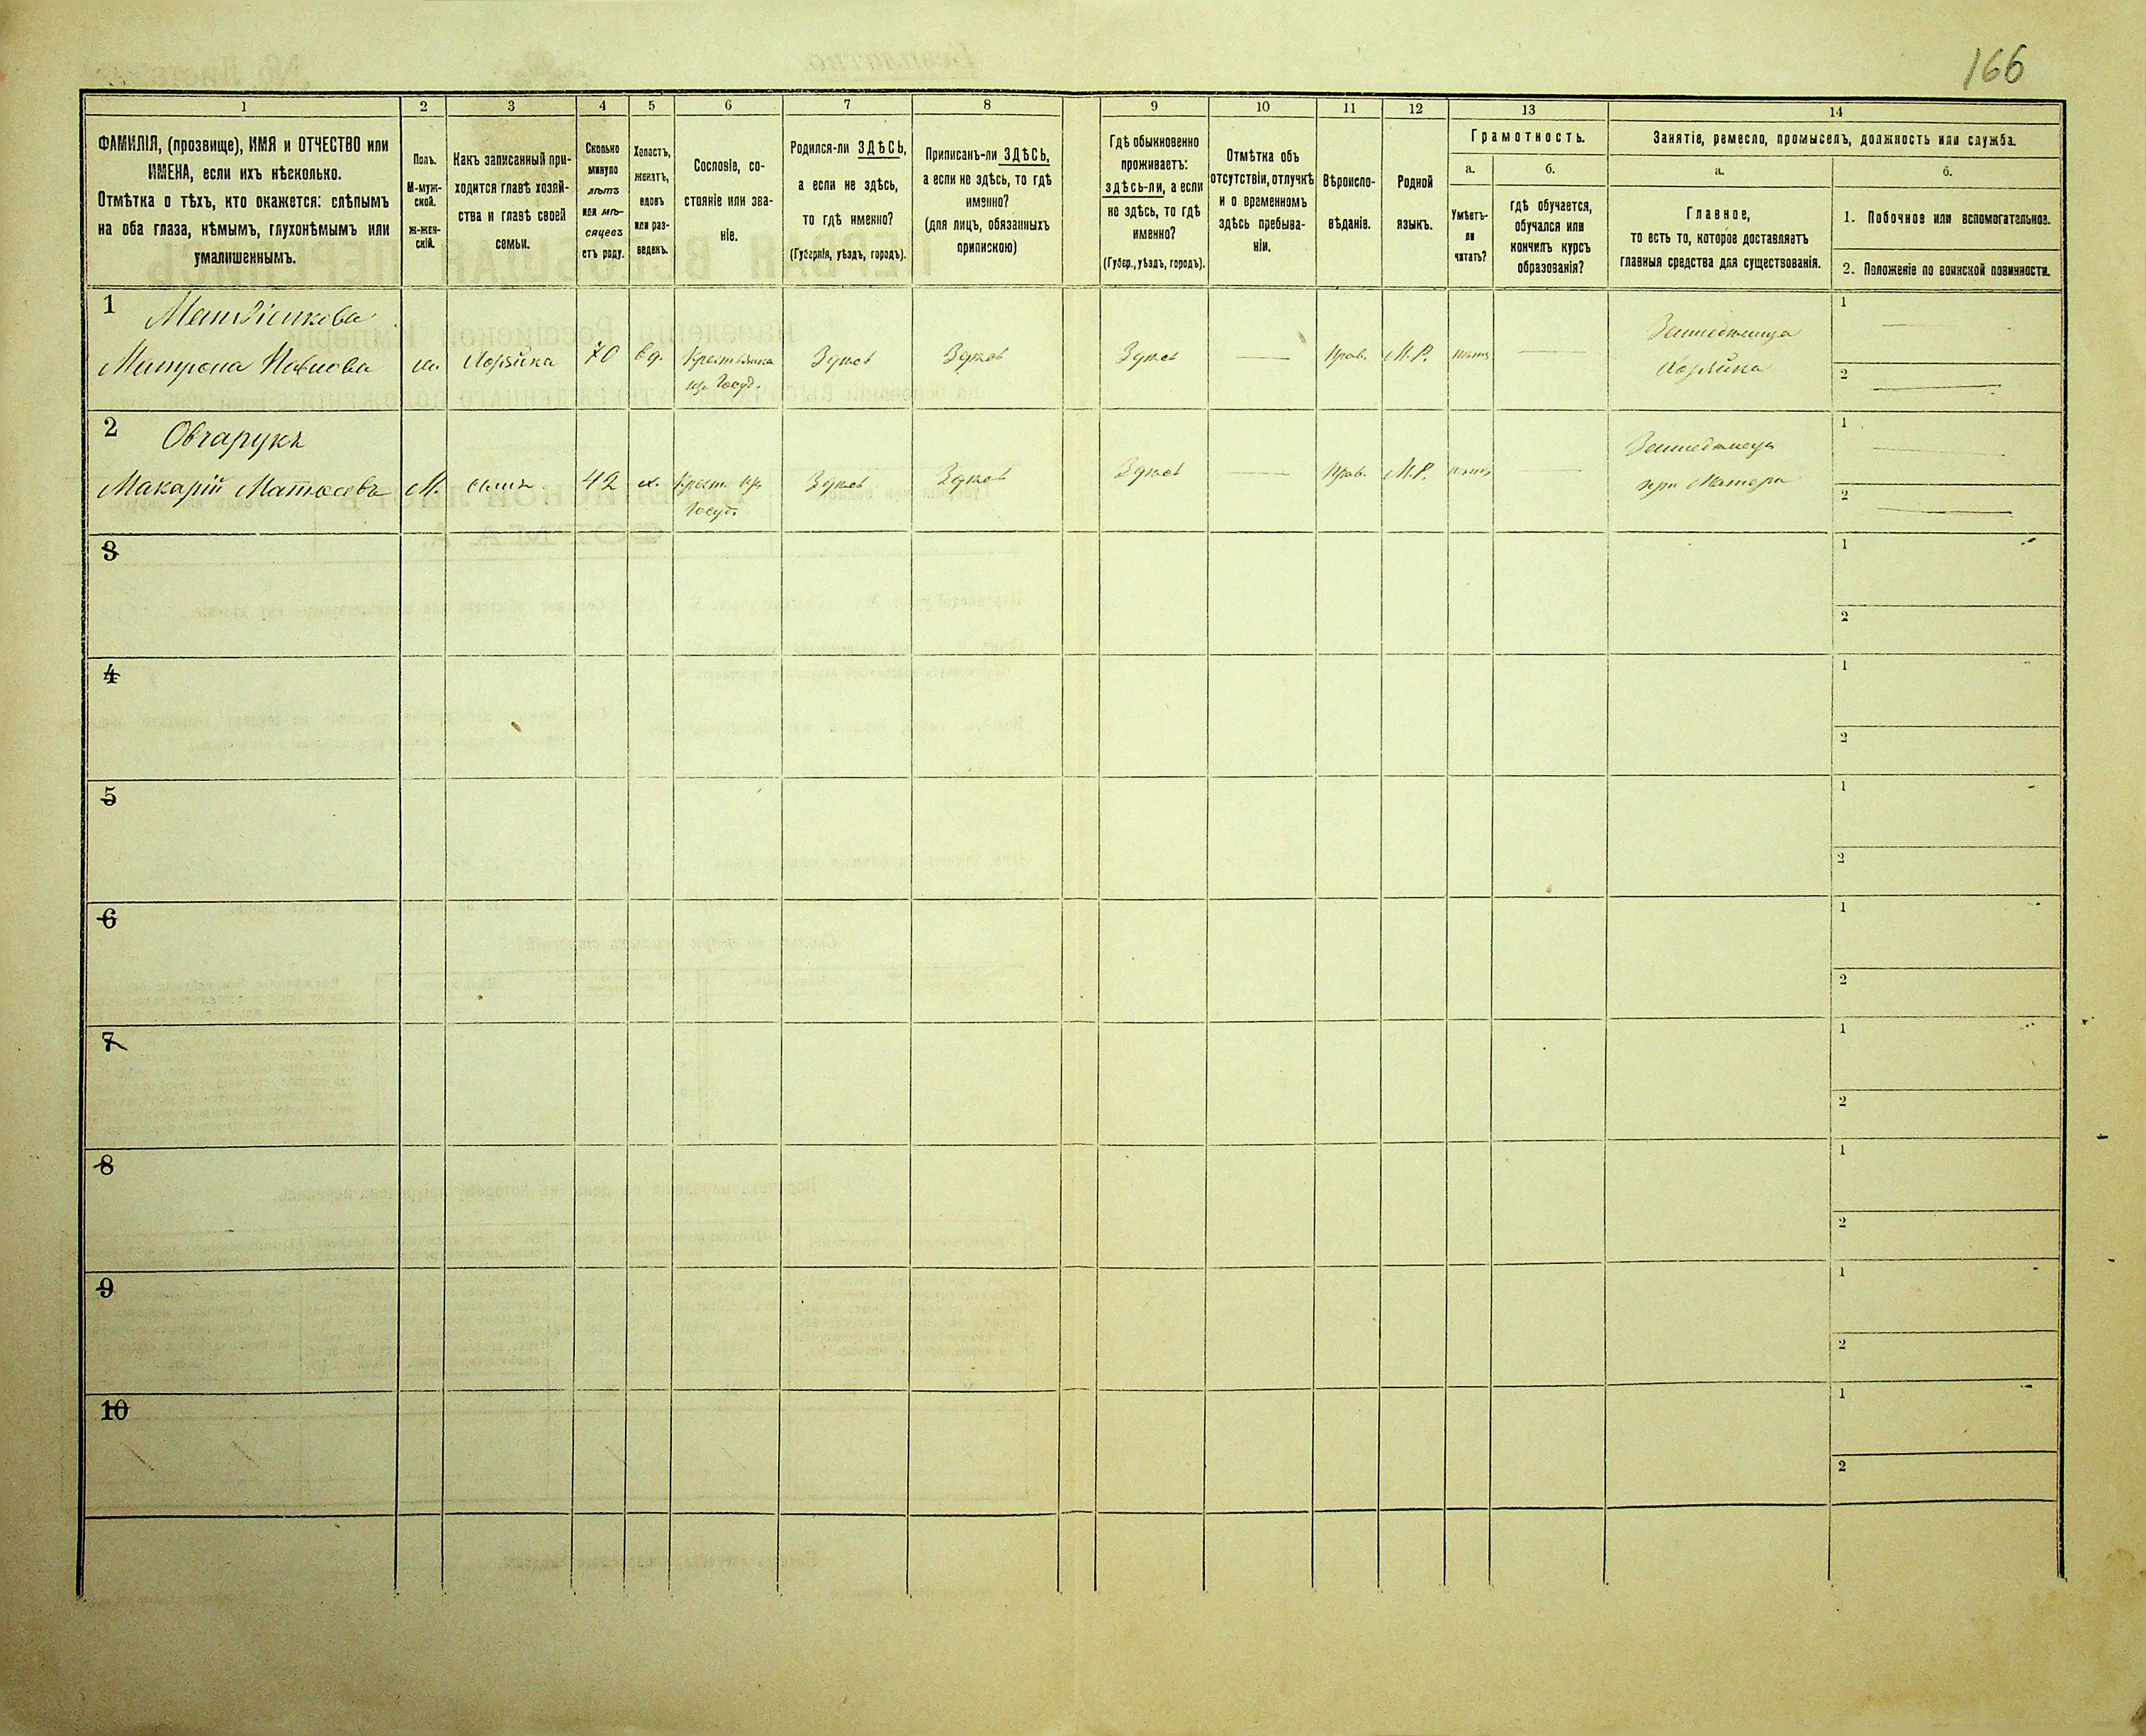 166
1 2 3 4 5 6 7 8 9 10 11 12 13 14
ФАМИЛІЯ, (прозвище), ИМЯ и ОТЧЕСТВО или
ИМЕНА, если ихъ нѣсколько.
Отмѣтка о тѣхъ, кто окажется: слѣпымъ
на оба глаза, нѣмымъ, глухонѣмымъ или
умалишеннымъ.
Полъ.
М-муж-
ской.
ж-жен-
скій.
Какъ записанный при-
ходится главѣ хозяй-
ства и главѣ своей
семьи.
Сколько
минуло
лѣтъ
или мѣ-
сяцевъ
отъ роду.
Холостъ,
женатъ,
вдовъ
или раз-
веденъ.
Сословіе, со-
стояніе или зва-
ніе.
Родился-ли ЗДѢСЬ,
а если не здѣсь,
то гдѣ именно?
(Губернія, уѣздъ, городъ).
Приписанъ-ли ЗДѢСЬ,
а если не здѣсь, то гдѣ
именно?
(для лицъ, обязанныхъ
припискою)
Гдѣ обыкновенно
проживаетъ:
здѣсь-ли, а если
не здѣсь, то гдѣ
именно?
(Губер., уѣздъ, городъ).
Отмѣтка объ
отсутствіи, отлучкѣ
и о временномъ
здѣсь пребыва-
ніи.
Вѣроиспо-
вѣданіе.
Родной
языкъ.
Грамотность.
а.
Умѣетъ-
ли
читать?
б.
гдѣ обучается,
обучался или
кончилъ курсъ
образованія?
Занятіе, ремесло, промыселъ, должность или служба.
а.
Главное,
то есть то, которое доставляетъ
главныя средства для существованія.
б.
1. Побочное или вспомогательное.
2. Положеніе по воинской повинности.
1
Матрона
Хозяйка
70
вд.
Крестьянка
из Госуд.
Здѣсь
Здѣсь
Здѣсь
Прав.
М.Р.
нѣтъ
Хозяйка
1
2
2 Овчарукъ
Макарій
М.
сынъ
42
х.
Крест. из
Госуд.
Здѣсь
Здѣсь
Здѣсь
Прав.
М.Р.
нѣтъ
при Матери
1
2
3
1
2
4
1
2
5
1
2
6
1
2
7
1
2
8
1
2
9
1
2
10
1
2